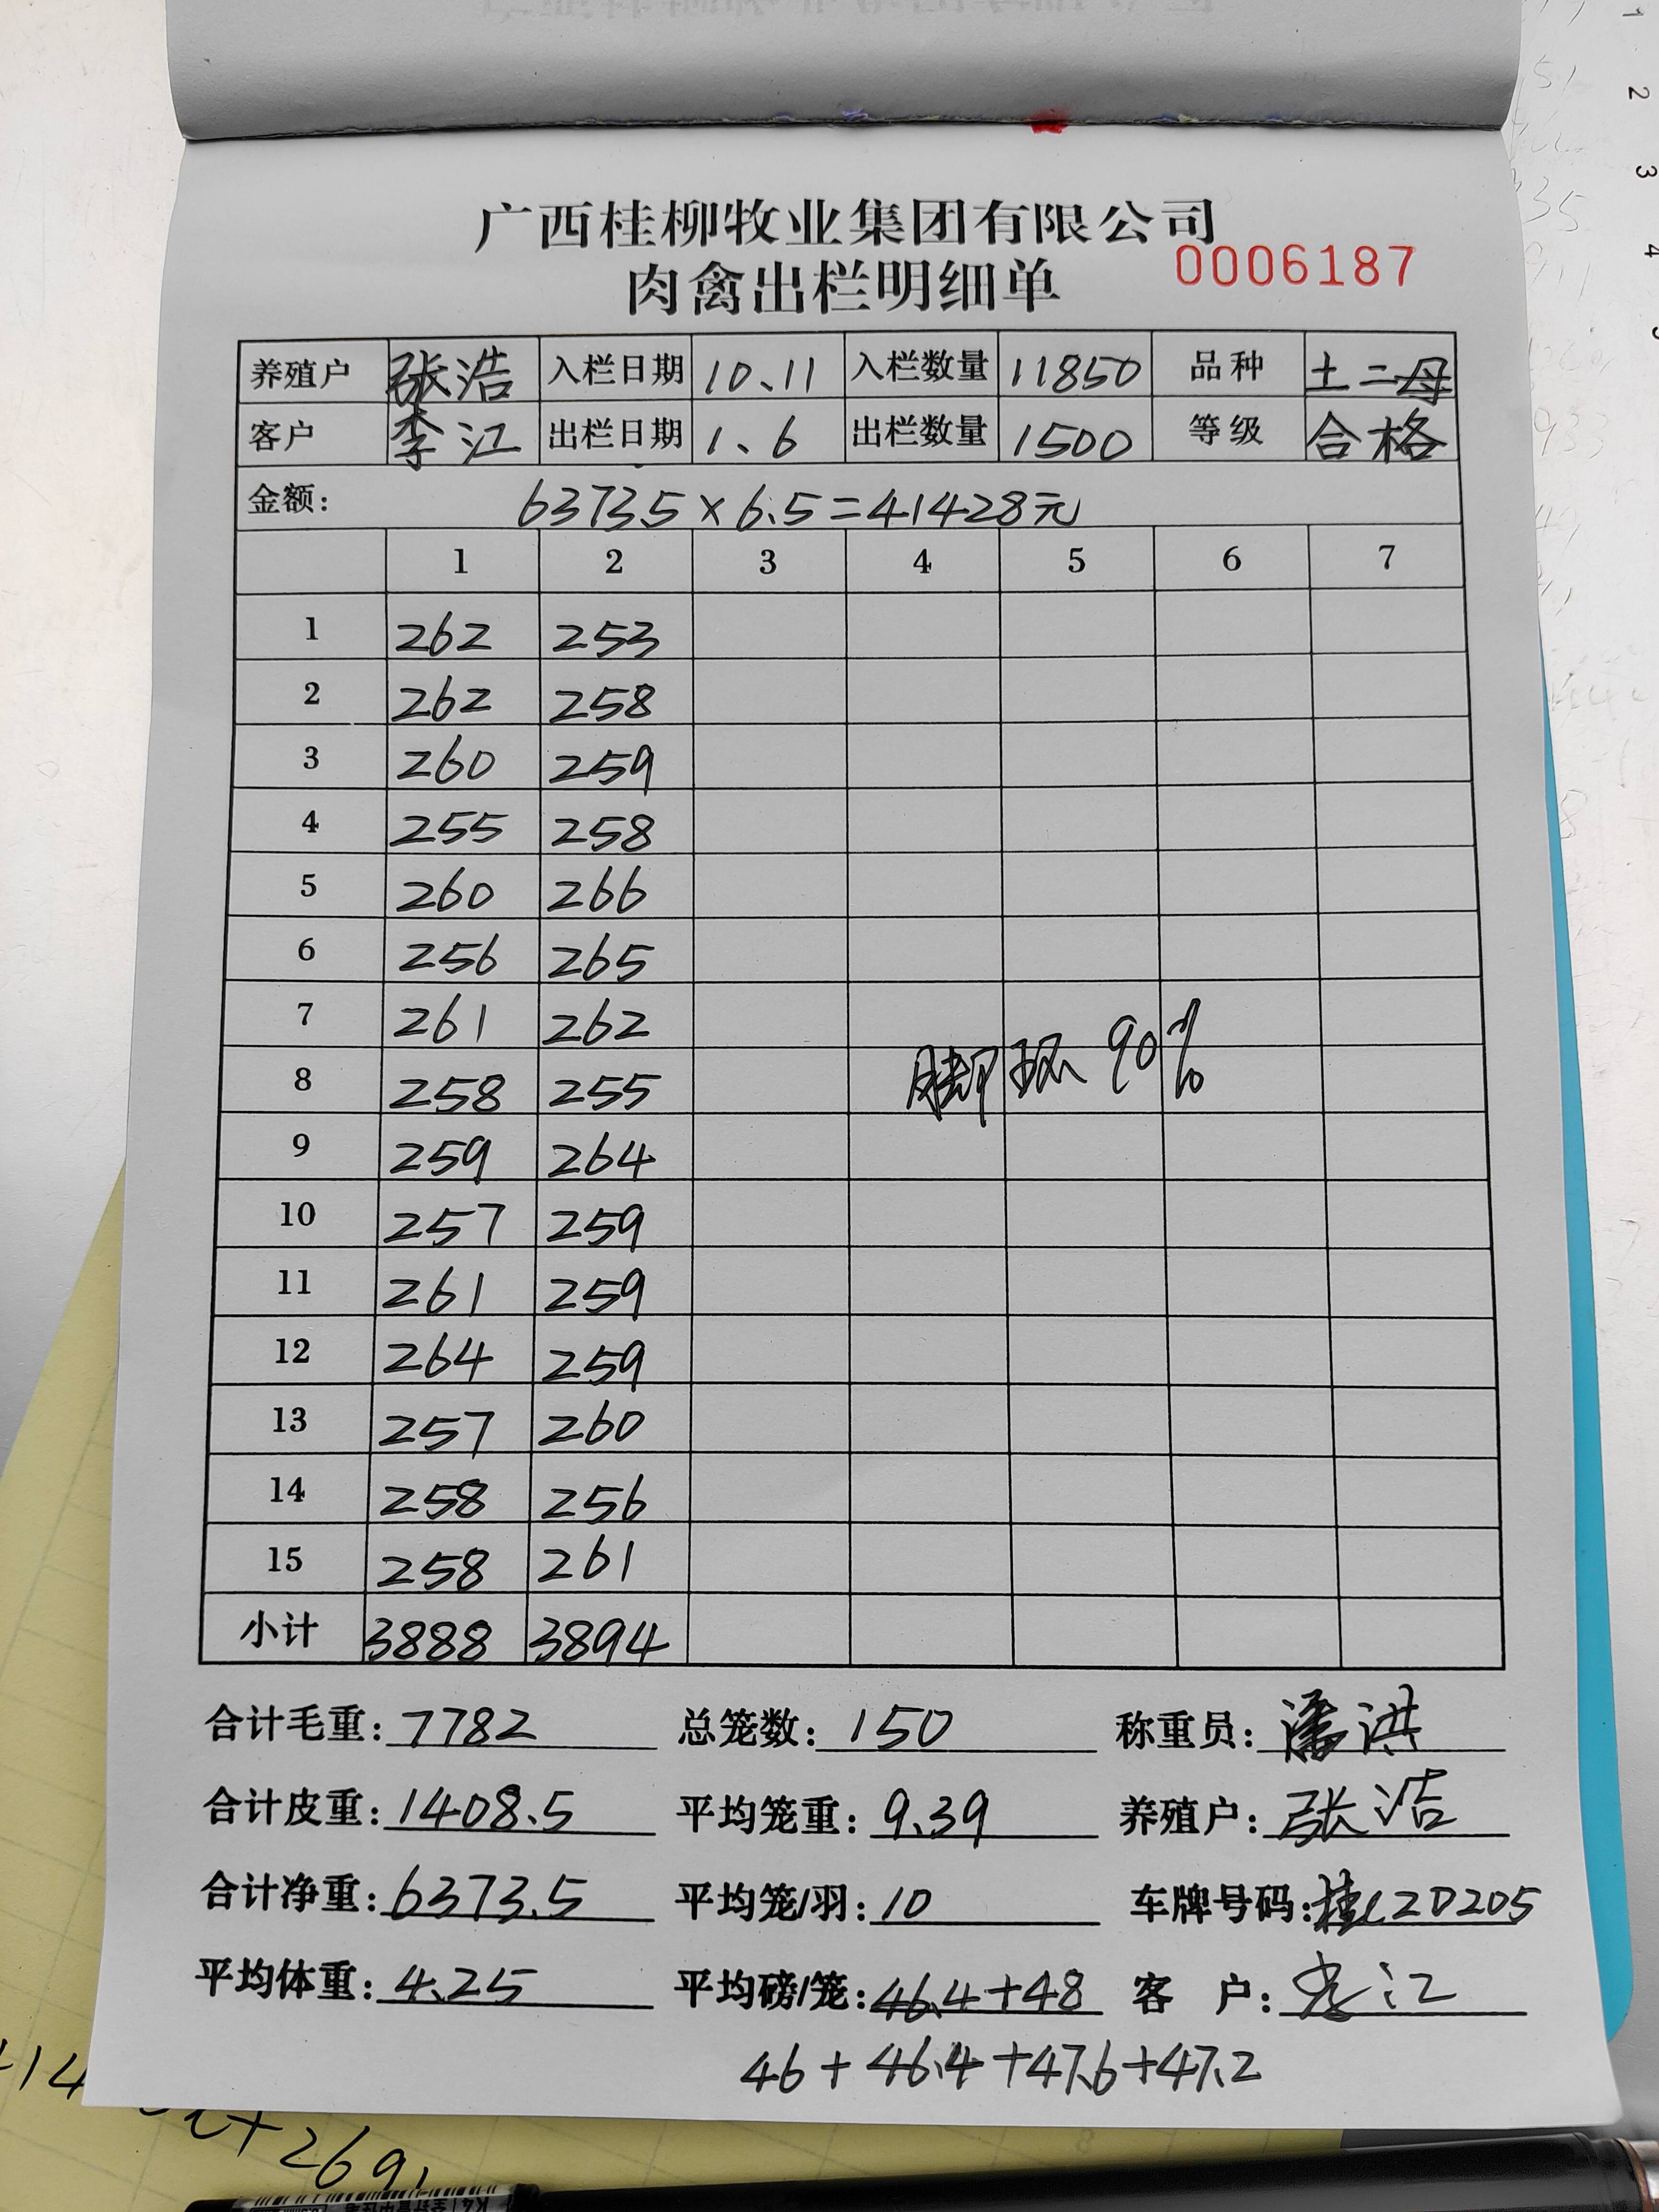 广西桂柳牧业集团有限公司
肉禽出栏明细单 0006187
养殖户 张浩 入栏日期 10.11 入栏数量 11850 品种 土二母
客户 李江 出栏日期 1.6 出栏数量 1500 等级 合格
金额: 6373.5×6.5=41428元
1 2 3 4 5 6 7
1 262 253
2 262 258
3 260 259
4 255 258
5 260 266
6 256 265
7 261 262
脚环90%
8 258 255
9 259 264
10 257 259
11 261 259
12 264 259
13 257 260
14 258 256
15 258 261
小计 3888 3894
合计毛重: 7782 总笼数: 150 称重员: 潘洪
合计皮重: 1408.5 平均笼重: 9.39 养殖户: 张浩
合计净重: 6373.5 平均笼/羽: 10 车牌号码: 桂CZD205
平均体重: 4.25 平均磅/笼: 46.4+48 客 户: 李江
46+46.4+47.6+47.2
+269